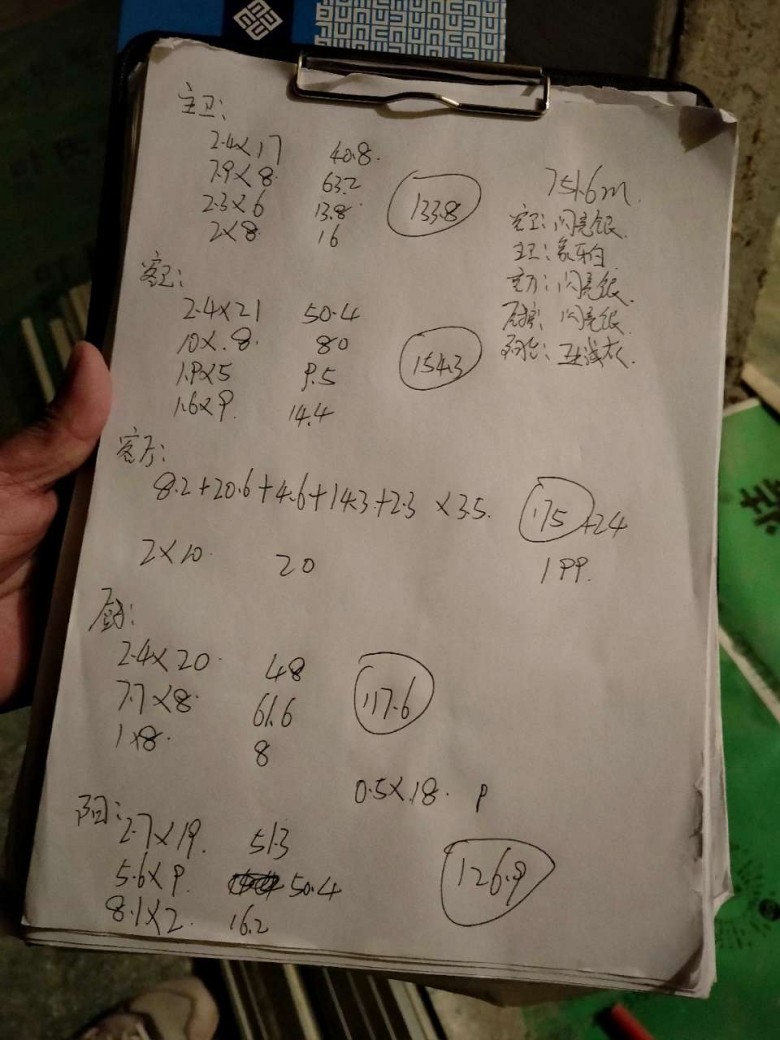 主卫:
2.4×17 40.8.
7.9×8 63.2
2.3×6 13.8
2×8 16
133.8
751.6m.
客卫:闪亮银.
主卫:象牙白
客厅:闪亮银.
厨房:闪亮银.
阳台:
客卫:
2.4×21 50.4
10×.8 80
1.9×5 9.5
1.6×9. 14.4
154.3
客厅:
8.2+20.6+4.6+14.3+2.3 ×3.5.
175 +24
199.
2×10 20
厨:
2.4×20 48
7.7×8 61.6
1×8 8
117.6
0.5×18. 9
阳台:
2.7×19. 51.3
5.6×9. 50.4
8.1×2. 16.2
126.9